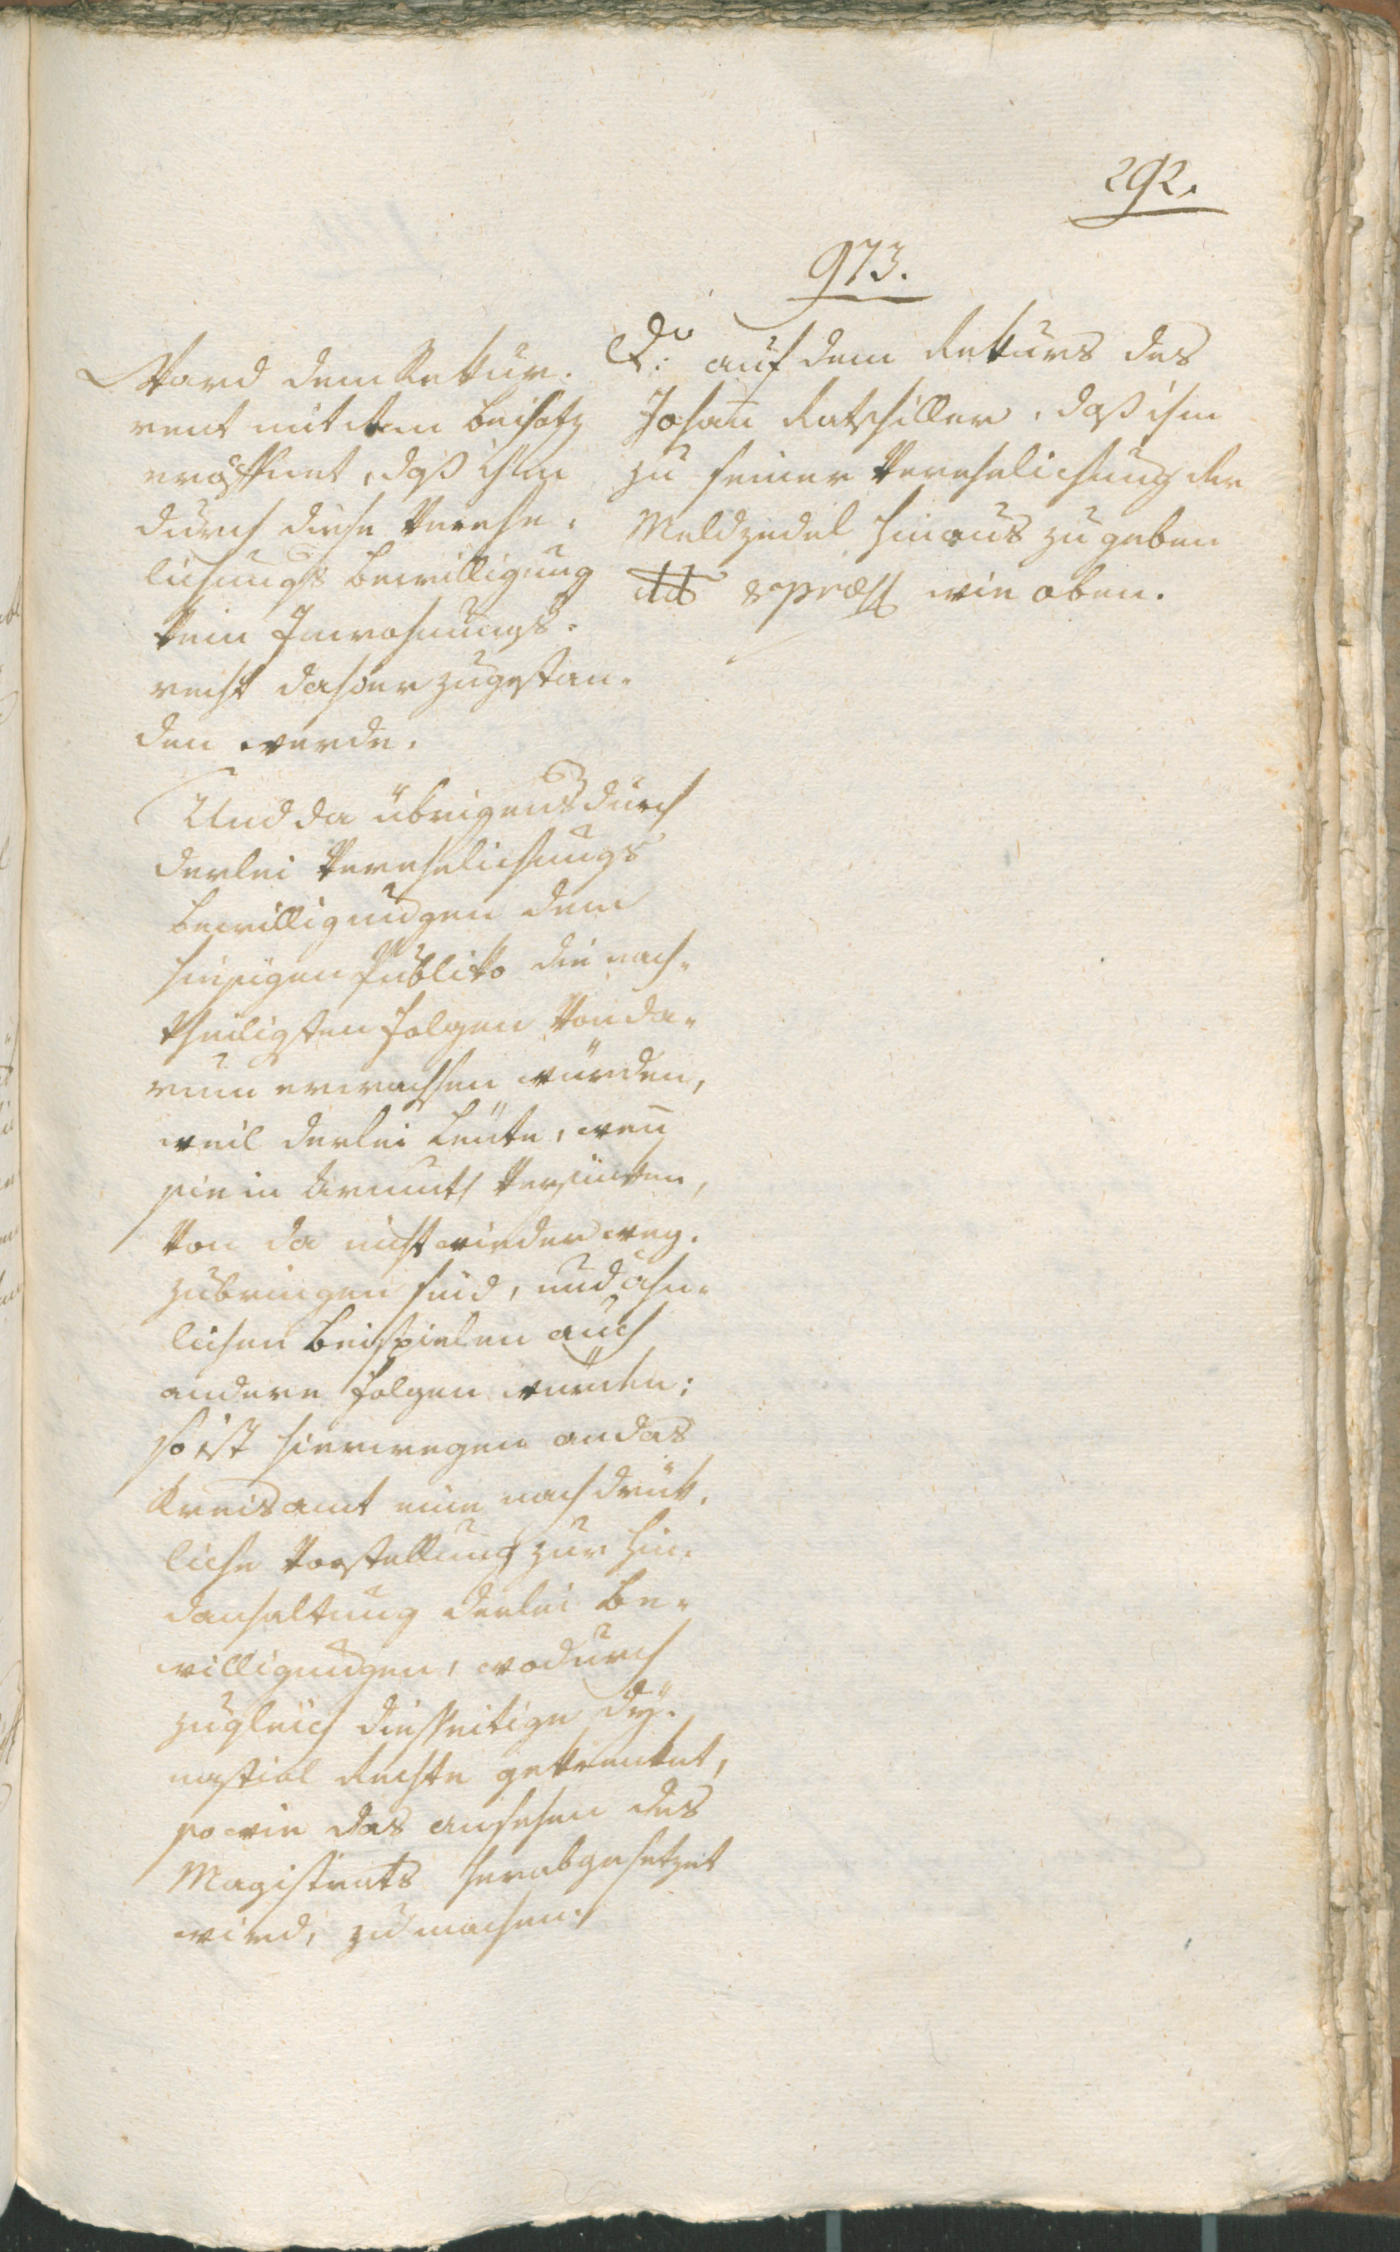 292.
973.
Do: auf dem Rekurs des
Johan̄ Ratschiller, daß ihm
zu seiner Verehelichung der
Meldzedel hinaus zu geben
wie oben.
Ward dem Rekur-
rent mit dem Beisatz
eröffnet, daß ihm
durch diese Verehe-
lichungs Bewilligung
kein Inwohnungs-
recht daher zugestan-
den werde.
Und da übrigens durch
derlei Verehelichungs
bewilligungen dem
hiesigen Publiko die nach-
theiligsten Folgen von da-
rum erwachsen würden,
weil derlei Leute, wen̄
sie in Armuth versinken,
von da nicht wieder weg-
zubringen sind, und ähn-
lichen Beispielen auch
andere folgen würden;
so ist hierwegen an das
Kreisamt eine nachdrük-
liche Vorstellung zur Hin-
danhaltung derlei Be-
willigungen, wodurch
zugleich diesseitige Dÿ-
nastial Rechte gekränket,
so wie das Ansehen des
Magistrats herabgesetzet
wird, zu machen.